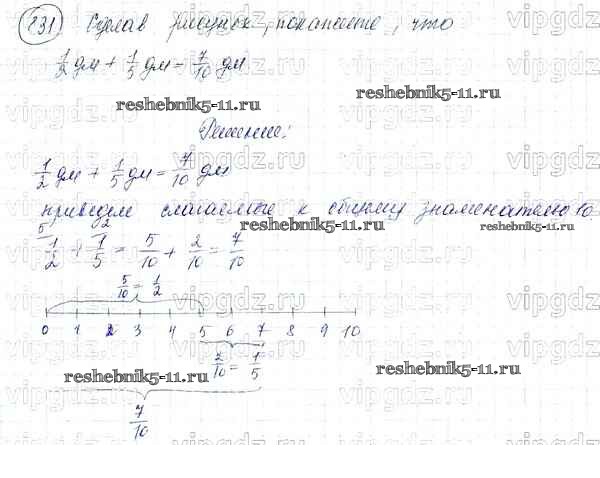 831 Сделав рисунок, покажите, что
1/2 дм + 1/5 дм = 7/10 дм
reshebnik5-11.ru
Решение:
1/2 дм + 1/5 дм = 7/10 дм
приведем слагаемые к общему знаменателю 10.
reshebnik5-11.ru reshebnik5-11.ru
5 2
1/2 + 1/5 = 5/10 + 2/10 = 7/10
5/10 = 1/2
0 1 2 3 4 5 6 7 8 9 10
2/10 = 1/5
reshebnik5-11.ru
7/10
reshebnik5-11.ru
vipgdz.ru